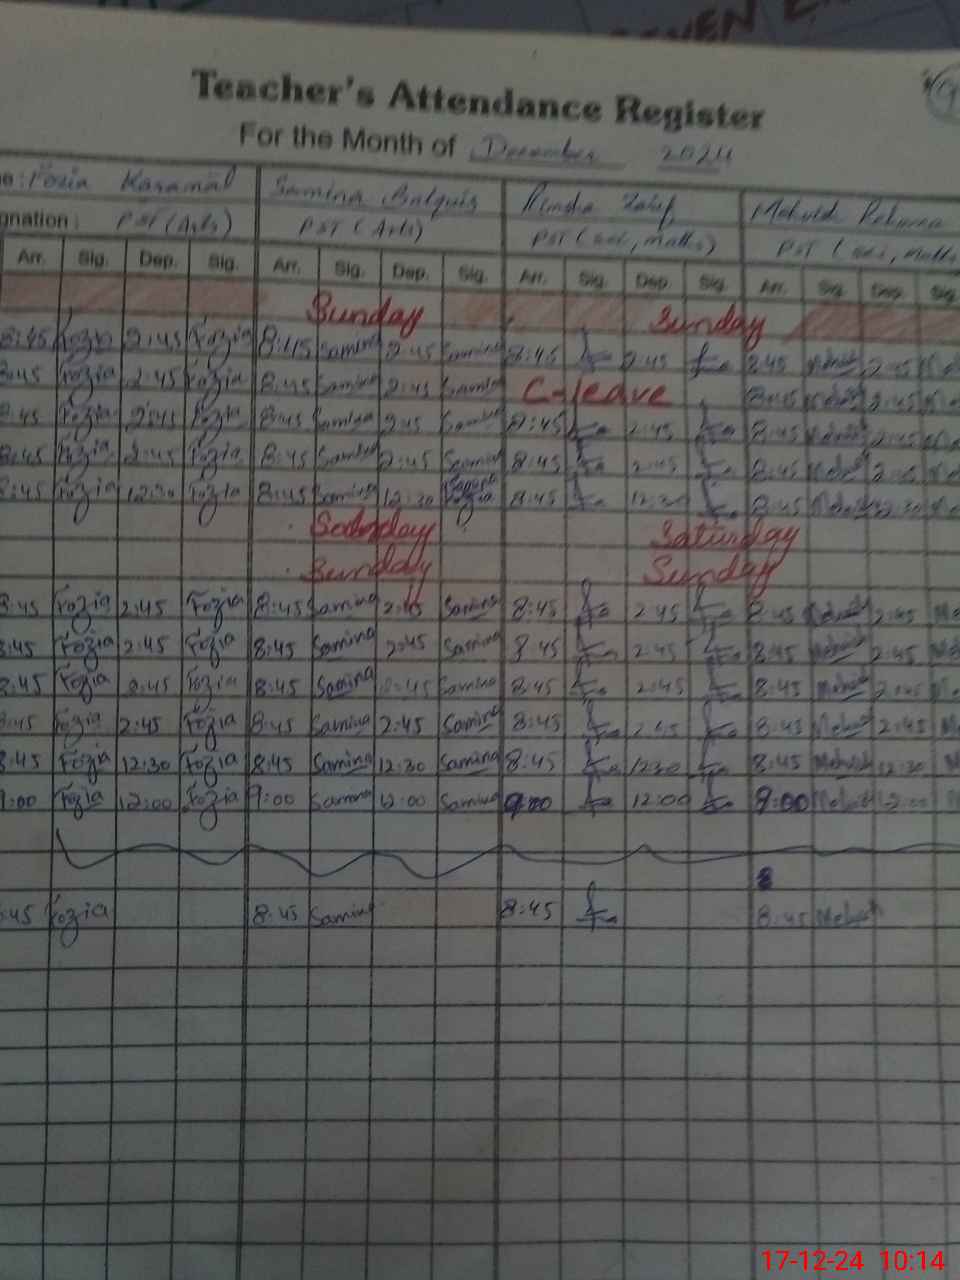 Teacher's Attendance Register
For the Month of December 2024
Samina Balquis
gnation: PST (Arts) PST (Arts) PST (Sci, maths) PST (Sci, maths
Arr. Sig. Dep. Sig. Arr. Sig. Dep. Sig. Arr. Sig. Dep. Sig. Arr. Sig. Dep. Sig.
Sunday Sunday
8:45 Fozia 2:45 Fozia 8:45 Samina 2:45 Samina 8:45 2:45 8:45 Mehvish 2:45
8:45 Fozia 2:45 Fozia 8:45 Samina 2:45 Samina C-leave 8:45 Mehvish 2:45
8:45 Fozia 2:45 Fozia 8:45 Samina 2:45 Samina 8:45 2:45 8:45 Mehvish 2:45
8:45 Fozia 2:45 Fozia 8:45 Samina 2:45 Samina 8:45 2:45 8:45 Mehvish 2:45
8:45 Fozia 12:30 Fozia 8:45 Samina 12:30 8:45 12:30 8:45 Mehvish 12:30
Saturday Saturday
Sunday Sunday
8:45 Fozia 2:45 Fozia 8:45 Samina 2:45 Samina 8:45 2:45 8:45 Mehvish 2:45
8:45 Fozia 2:45 Fozia 8:45 Samina 2:45 Samina 8 45 2:45 8:45 Mehvish 2:45
8:45 Fozia 2:45 Fozia 8:45 Samina 2:45 Samina 8:45 2:45 8:45 Mehvish 2:45
8:45 Fozia 2:45 Fozia 8:45 Samina 2:45 Samina 8:45 2:45 8:45 Mehvish 2:45
8:45 Fozia 12:30 Fozia 8:45 Samina 12:30 Samina 8:45 12:30 8:45 Mehvish 12:30
9:00 Fozia 12:00 Fozia 9:00 Samina 12:00 Samina 9:00 12:00 9:00 Mehvish 12:00
8
:45 Fozia 8:45 Samina 8:45 8:45 Mehvish
17-12-24 10:14